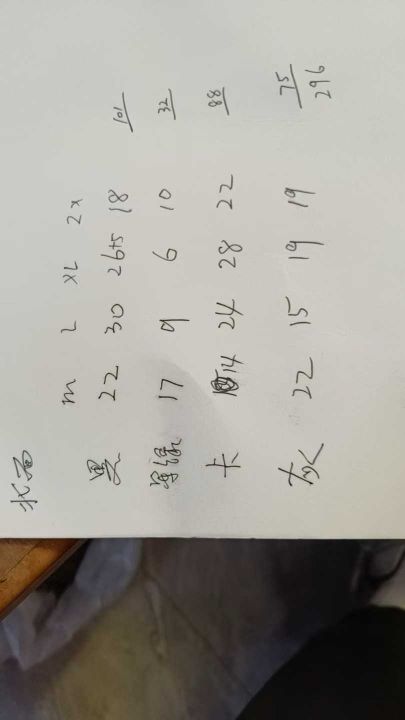 M L XL 2X
黑 22 30 26+5 18 101
军绿 17 9 6 10 32
卡 14 24 28 22 88
灰 22 15 19 19 75
296